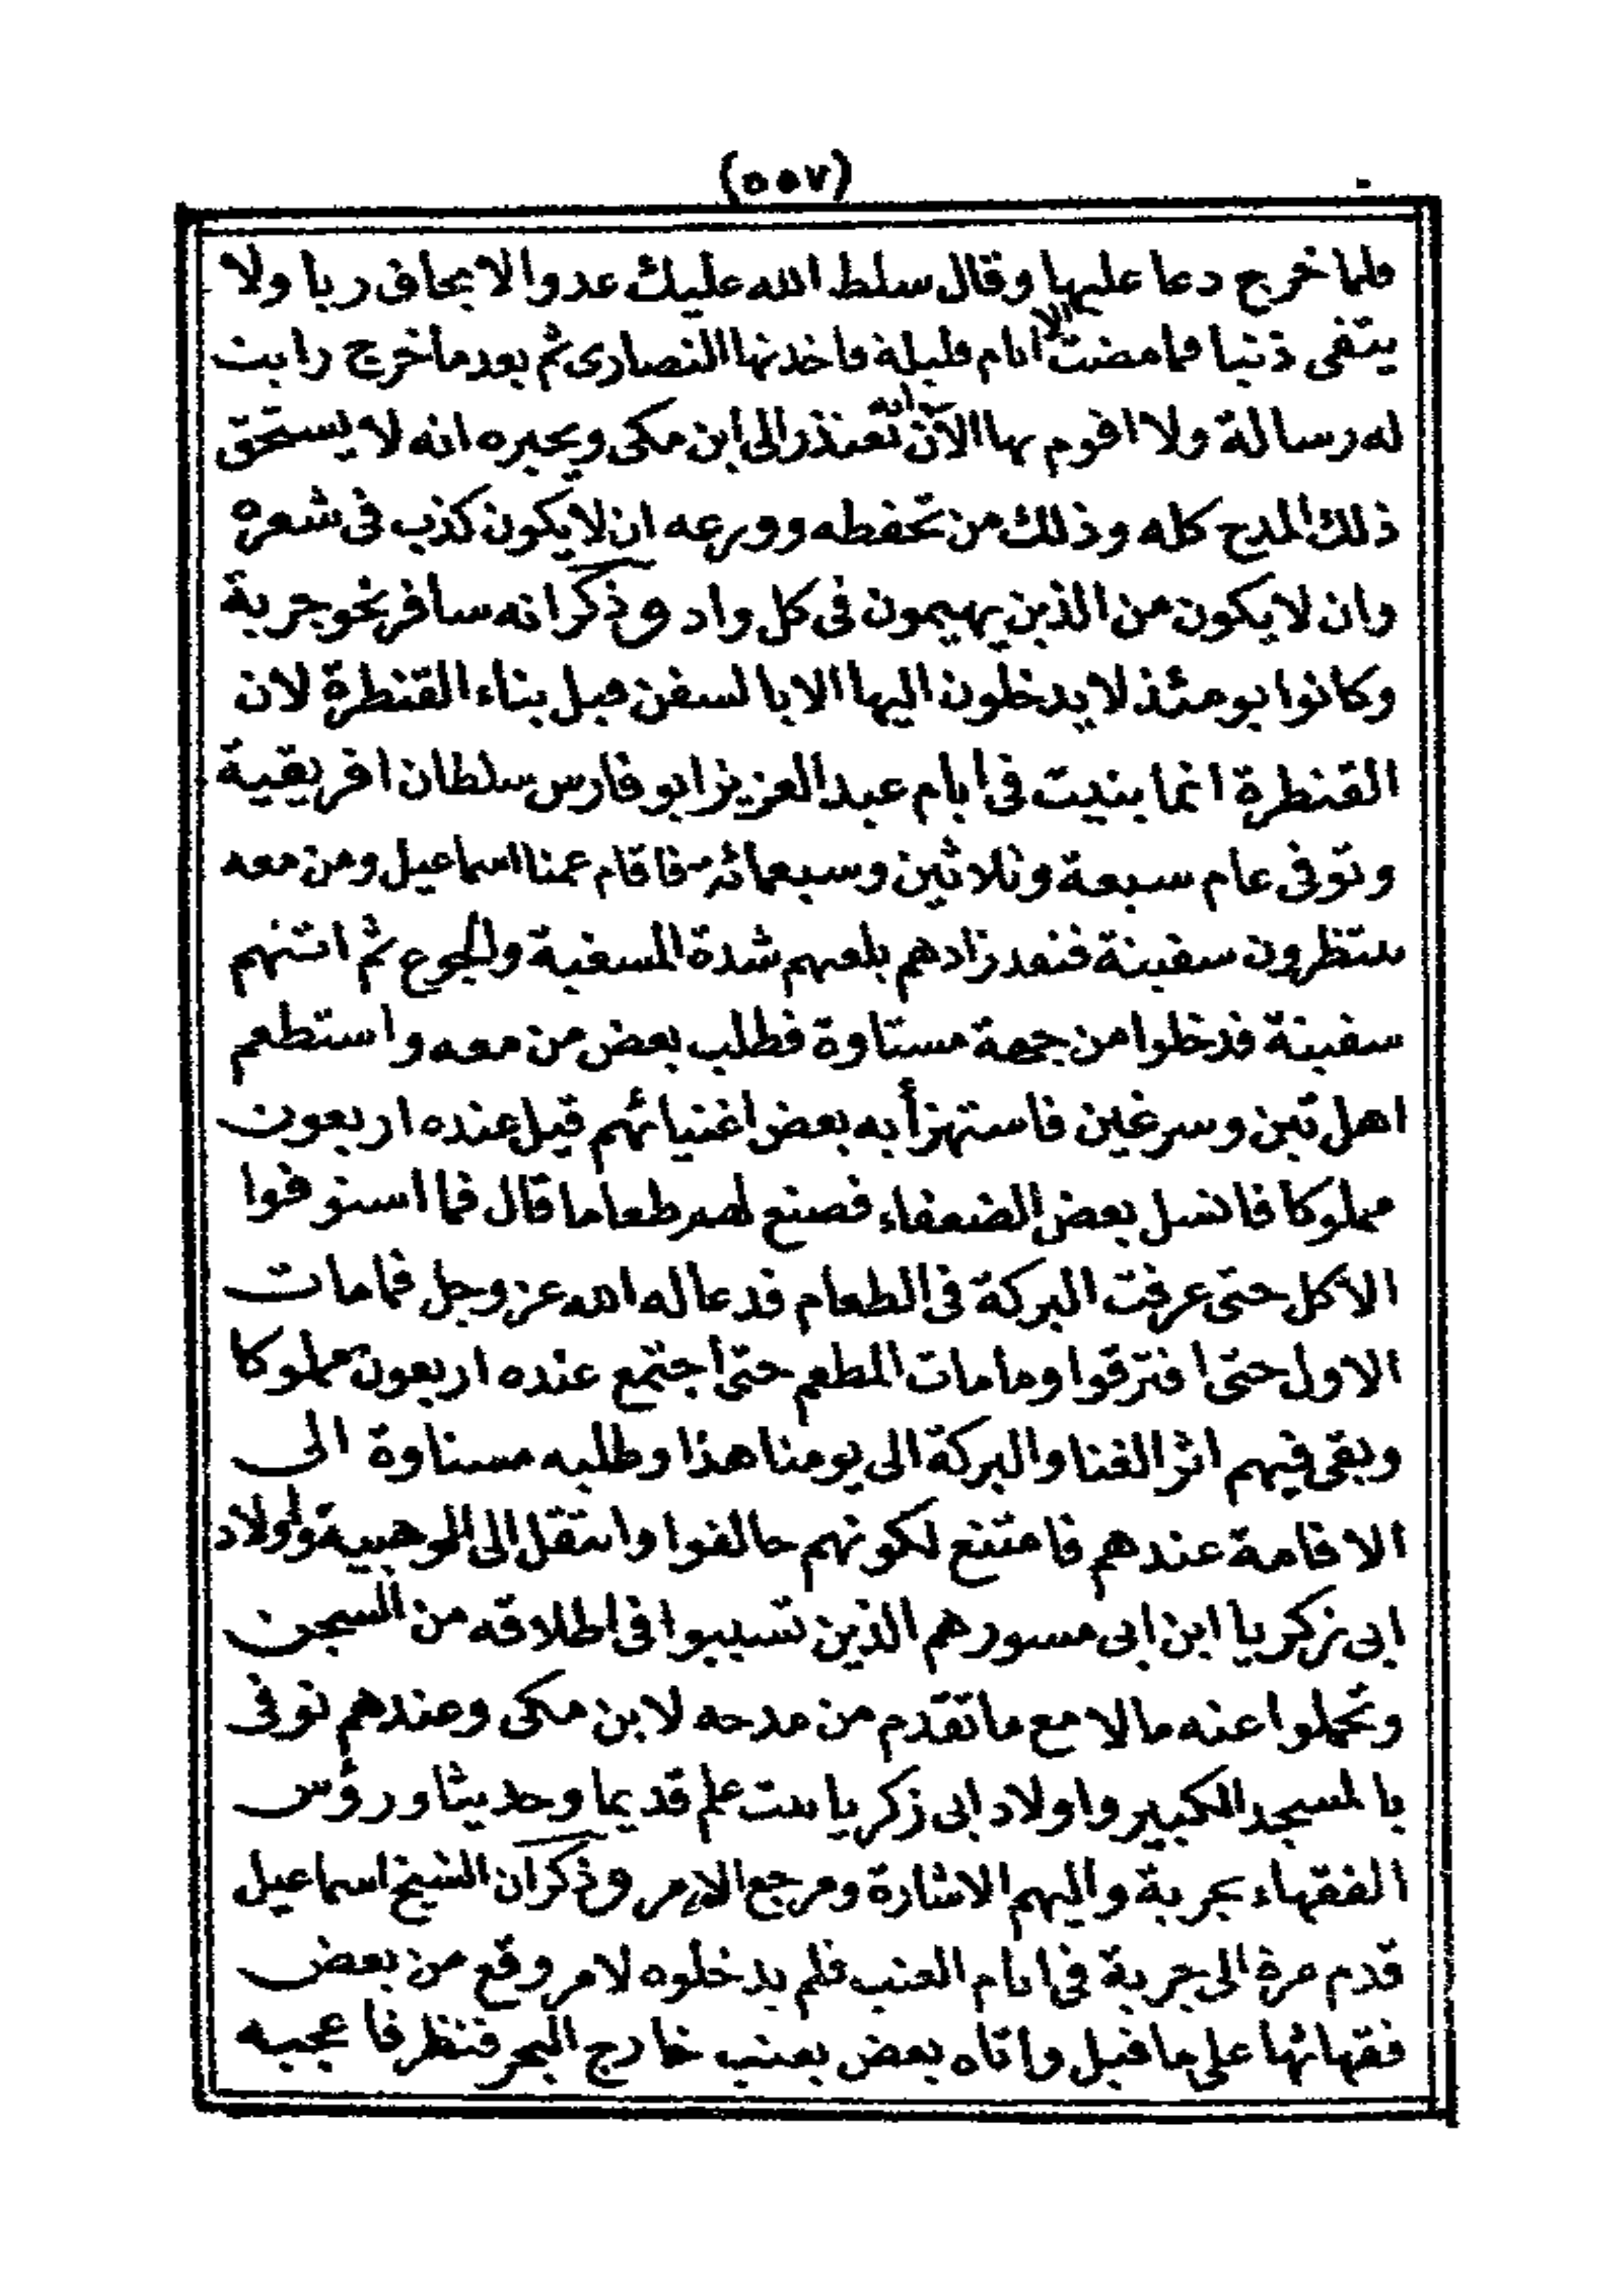 (٥٥٧)
فلما خرج دعا عليها وقال سلط الله عليك عدوا لا يخاف ربا ولا
يتقى ذنبا فما مضت الا ايام قليلة فاخذتها النصارى ثم بعد ما خرج رايت
له رسالة ولا اقوم بها الآن يعتذر الى ابن مكى ويخبره انه لا يستحق
ذلك المدح كله وذلك من تحفظه وورعه ان لا يكون كذب فى شعره
وان لا يكون من الذين يهيمون فى كل واد وذكر انه سافر نحو جربة
وكانوا يومئذ لا يدخلون اليها الا بالسفن قبل بناء القنطرة لان
القنطرة انما بنيت فى ايام عبد العزيز ابو فارس سلطان افريقية
وتوفى عام سبعة وثلاثين وسبعمائة فاقام عمنا اسماعيل ومن معه
ينتظرون سفينة فنفد زادهم بلغهم شدة المسغبة والجوع ثم اتتهم
سفينة فدخلوا من جهة مستاوة فطلب بعض من معه واستطعم
اهل تين وسرغين فاستهزأ به بعض اغنيائهم قيل عنده اربعون
مملوكا فانسل بعض الضعفاء فصنع لهم طعاما قال فما استوفوا
الاكل حتى عرفت البركة فى الطعام فدعا له الله عز وجل فما مات
الاول حتى افترقوا وما مات المطعم حتى اجتمع عنده اربعون مملوكا
وبقى فيهم اثر الغنا والبركة الى يومنا هذا وطلبه مستاوة الى
الاقامة عندهم فامتنع لكونهم خالفوا وانتقل الى الوهبية واولاد
ابى زكريا ابن ابى مسور هم الذين تسببوا فى اطلاقه من السجن
وتحملوا عنه مالا مع ما تقدم من مدحه لابن مكى وعندهم توفى
بالمسجد الكبير واولاد ابى زكريا بيت علم قديما وحديثا ورؤس
الفقهاء بجربة واليهم الاشارة ومرجع الامر وذكر ان الشيخ اسماعيل
قدم مرة الى جربة فى ايام العنب فلم يدخلوه لامر وقع من بعض
فقهائها على ما قيل واتاه بعض بعنب خارج البحر فنظر فاعجبه